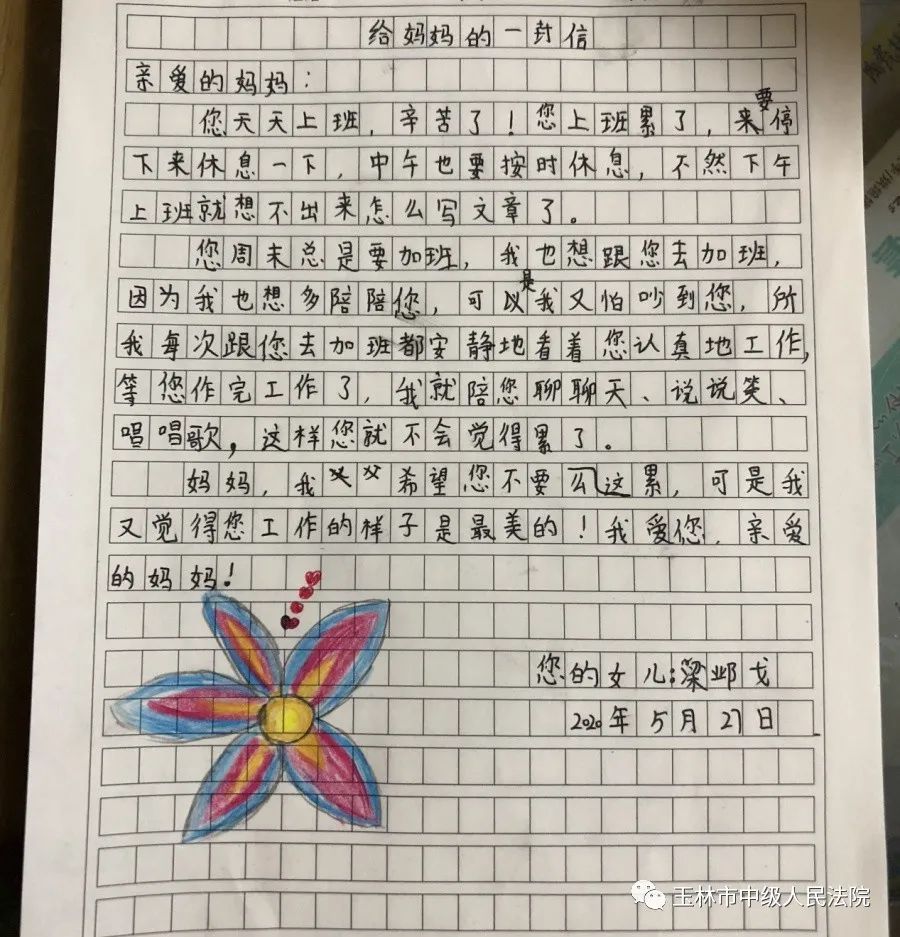 给妈妈的一封信
亲爱的妈妈：
您天天上班，辛苦了！您上班累了，来要停
下来休息一下，中午也要按时休息，不然下午
上班就想不出来怎么写文章了。
您周末总是要加班，我也想跟您去加班，
因为我也想多陪陪您，可以是我又怕吵到您，所
我每次跟您去加班都安静地看着您认真地工作，
等您作完工作了，我就陪您聊聊天、说说笑、
唱唱歌，这样您就不会觉得累了。
妈妈，我希望您不要么这累，可是我
又觉得您工作的样子是最美的！我爱您，亲爱
的妈妈！
您的女儿：梁邺戈
2020年5月27日
玉林市中级人民法院